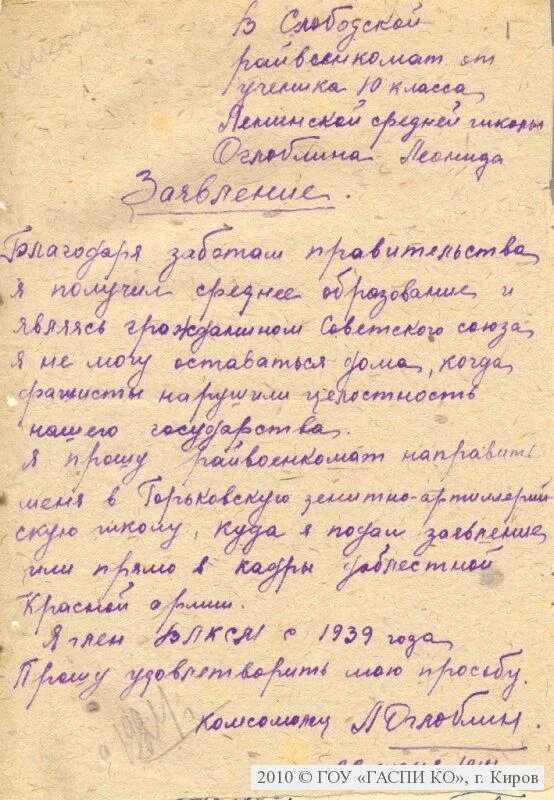 В Слободской
райвоенкомат от
ученика 10 класса
Ленинской средней школы
Оглоблина Леонида
Заявление.
Благодаря заботам правительства
я получил среднее образование и
являясь гражданином Советского союза
я не могу оставаться дома, когда
фашисты нарушили целостность
нашего государства.
Я прошу райвоенкомат направить
меня в Горьковскую зенитно-артиллерий-
скую школу, куда я подал заявление
или прямо в кадры доблестной
Красной армии.
Я член ВЛКСМ с 1939 года
Прошу удовлетворить мою просьбу.
комсомолец Л Оглоблин.
2010 © ГОУ «ГАСПИ КО», г. Киров